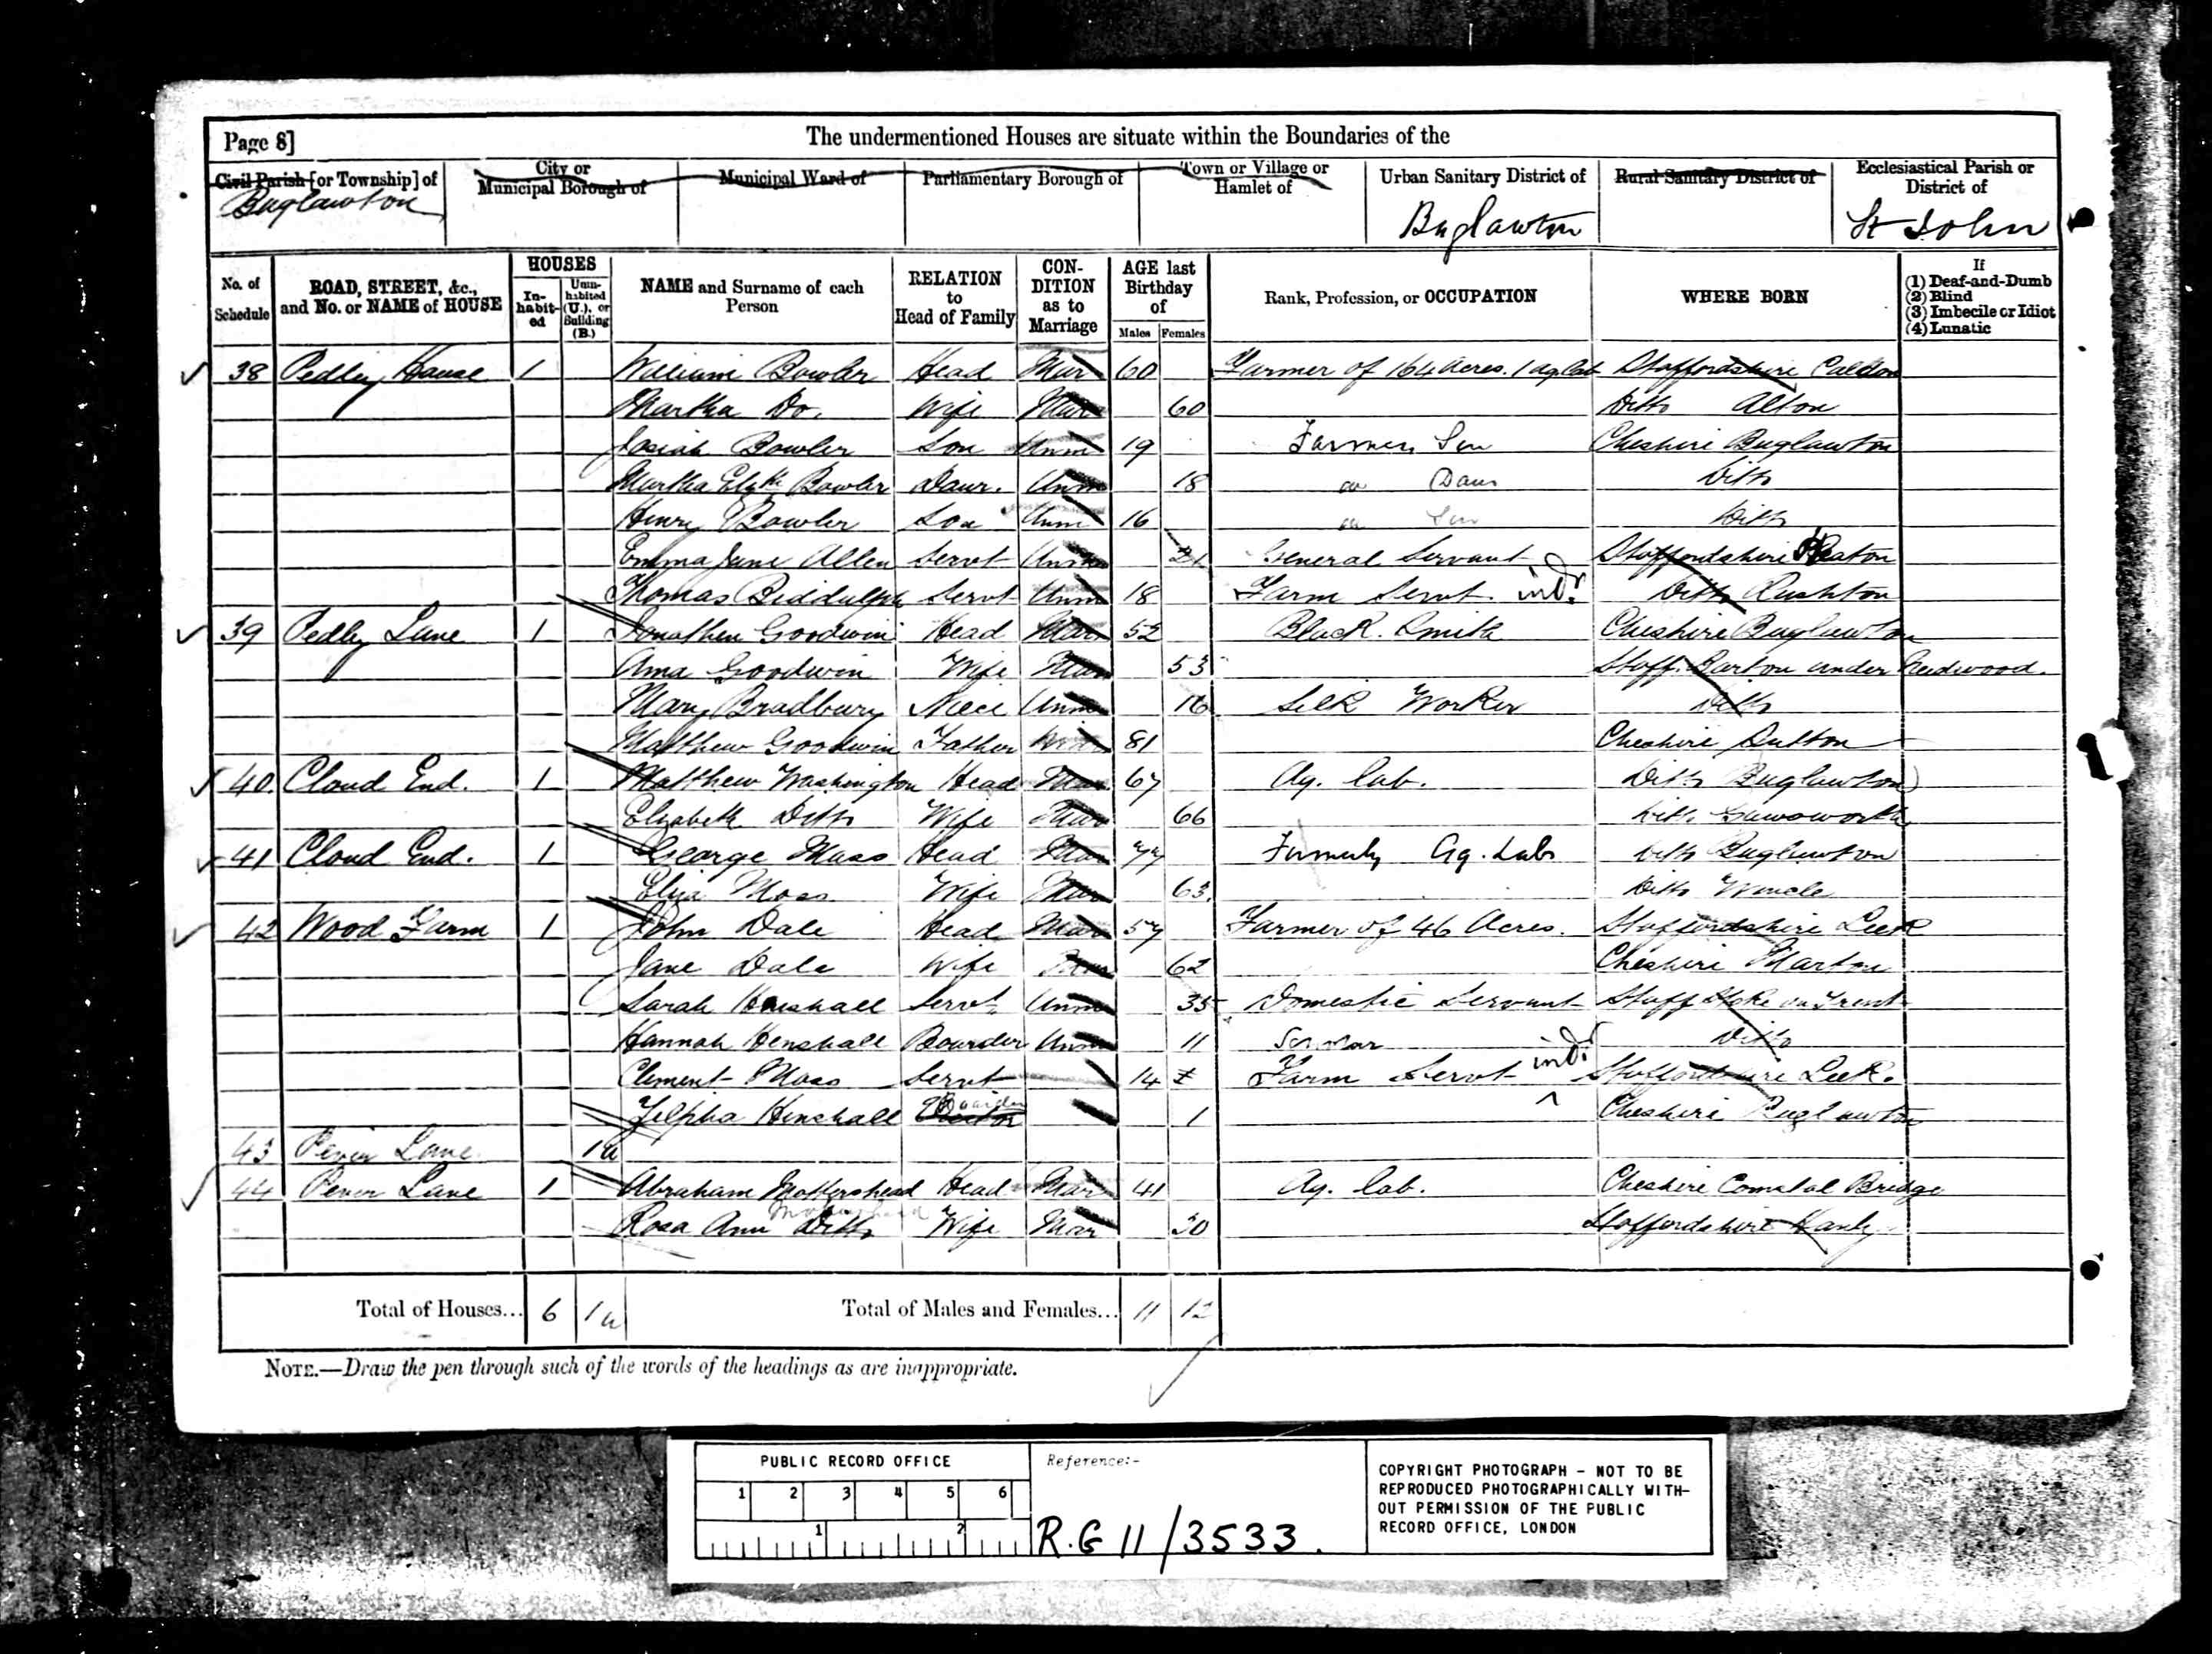 Page 8]
The undermentioned Houses are situate within the Boundaries of the
Civil Parish [or Township] of
Buglawton
City or
Municipal Borough of
Municipal Ward of
Parliamentary Borough of
Town or Village or
Hamlet of
Urban Sanitary District of
Buglawton
Rural Sanitary District of
Ecclesiastical Parish or
District of
St John
No. of
Schedule
ROAD, STREET, &c.,
and No. or NAME of HOUSE
HOUSES
In-
habit-
ed
Unin-
habited
(U.), or
Building
(B.)
NAME and Surname of each
Person
RELATION
to
Head of Family
CON-
DITION
as to
Marriage
AGE last
Birthday
of
Males Females
Rank, Profession, or OCCUPATION
WHERE BORN
If
(1) Deaf-and-Dumb
(2) Blind
(3) Imbecile or Idiot
(4) Lunatic
38 Pedley House 1 William Bowler Head Mar 60 Farmer of 164 Acres. 1 ag lab Staffordshire Caldon
Martha Do. Wife Mar 60 Ditto Alton
Josiah Bowler Son Unm 19 Farmers Son Cheshire Buglawton
Martha Elzth Bowler Daur. Unm 18 do Daur Ditto
Henry Bowler Son Unm 16 do Son Ditto
Emma Jane Allen Servt Unm 21 General Servant Staffordshire Heaton
Thomas Biddulph Servt Unm 18 Farm Servt. indr Ditto Rushton
39 Pedley Lane 1 Jonathen Goodwin Head Mar 52 Black Smith Cheshire Buglawton
Anna Goodwin Wife Mar 53 Staff. Barton under Needwood.
Mary Bradbury Niece Unm 16 Silk Worker Ditto
Matthew Goodwin Father Widr 81 Cheshire Sutton
40 Cloud End. 1 Matthew Washington Head Mar 67 Ag. Lab. Ditto Buglawton
Elizabeth Ditto Wife Mar 66 Ditto Gawsworth
41 Cloud End. 1 George Moss Head Mar 77 Formerly Ag. Lab Ditto Buglawton
Eliza Moss Wife Mar 63 Ditto Wincle
42 Wood Farm 1 John Dale Head Mar 57 Farmer of 46 Acres. Staffordshire Leek
Jane Dale Wife Mar 62 Cheshire Marton
Sarah Henshall Servt. Unm 35 Domestic Servant Staff Stoke on Trent
Hannah Henshall Boarder Unm 11 Scholar Ditto
Clement Moss Servt 14 Farm Servt indr Staffordshire Leek.
Zelpha Henshall Boarder Visitor 1 Cheshire Buglawton
43 Lane 1u
44 Lane 1 Abraham Mottershead Head Mar 41 Ag. Lab. Cheshire Bridge
Mottershead
Rosa Ann Ditto Wife Mar 30 Staffordshire Hanly
Total of Houses... 6 1u Total of Males and Females... 11 12
NOTE.—Draw the pen through such of the words of the headings as are inappropriate.
PUBLIC RECORD OFFICE
1 2 3 4 5 6
1 2
Reference:-
R.G 11/3533.
COPYRIGHT PHOTOGRAPH - NOT TO BE
REPRODUCED PHOTOGRAPHICALLY WITH-
OUT PERMISSION OF THE PUBLIC
RECORD OFFICE, LONDON